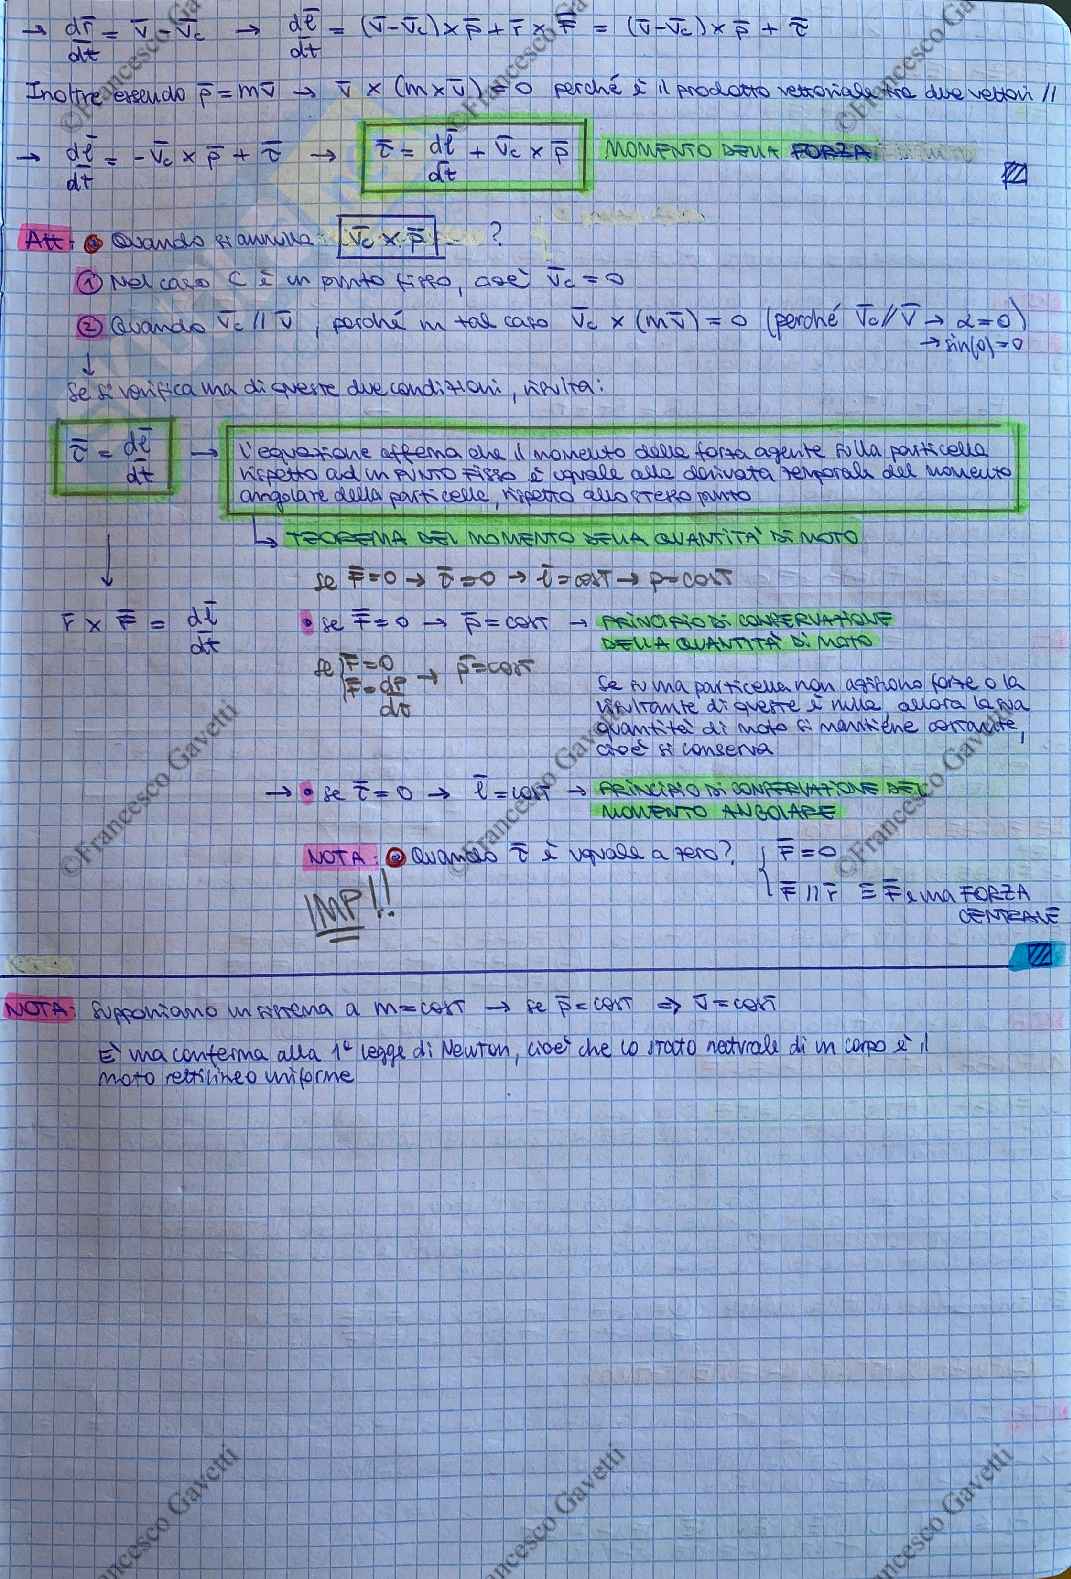 → dr̄/dt = v̄ - v̄c → dl̄/dt = (v̄-v̄c)×p̄ + r̄ × F̄ = (v̄-v̄c)×p̄ + τ̄
Inoltre essendo p̄ = mv̄ → v̄ × (m×v̄) = 0 perché è il prodotto vettoriale tra due vettori //
→ dl̄/dt = -v̄c × p̄ + τ̄ → τ̄ = dl̄/dt + v̄c × p̄ MOMENTO DELLA FORZA
Att: Quando si annulla: v̄c × p̄ ?
① Nel caso C è un punto fisso, cioè v̄c = 0
② Quando v̄c // v̄, perché in tal caso v̄c × (mv̄) = 0 (perché v̄c // v̄ → α=0)
→ sin(0)=0
↓
Se si verifica una di queste due condizioni, risulta:
τ̄ = dl̄/dt → L'equazione afferma che il momento della forza agente sulla particella
rispetto ad un PUNTO FISSO è uguale alla derivata temporale del momento
angolare della particella, rispetto allo stesso punto
↳ TEOREMA DEL MOMENTO DELLA QUANTITÀ DI MOTO
se F̄=0 → τ̄=0 → l̄=cost → p=cost
r̄ × F̄ = dl̄/dt
• se F̄=0 → p̄=cost → PRINCIPIO DI CONSERVAZIONE
DELLA QUANTITÀ DI MOTO
se F̄=0
F̄=dp̄/dt → p̄=cost
Se su una particella non agiscono forze o la
risultante di queste è nulla, allora la sua
quantità di moto si mantiene costante,
cioè si conserva
→ • se τ̄=0 → l̄=cost → PRINCIPIO DI CONSERVAZIONE DEL
MOMENTO ANGOLARE
NOTA: Quando τ̄ è uguale a zero? { F̄=0
F̄ // r̄ ≡ F̄ è una FORZA
CENTRALE
IMP!!
NOTA: Supponiamo un sistema a m=cost → se p̄=cost ⇒ v̄=cost
È una conferma alla 1ª legge di Newton, cioè che lo stato naturale di un corpo è il
moto rettilineo uniforme
©Francesco Gavetti
©Francesco Gavetti
©Francesco Gavetti
©Francesco Gavetti
©Francesco Gavetti
©Francesco Gavetti
Francesco Gavetti
Francesco Gavetti
Francesco Gavetti